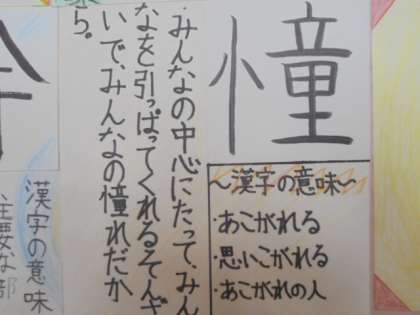 憧
〜漢字の意味〜
・あこがれる
・思いこがれる
・あこがれの人
・みんなの中心にたって、みん
なを引っぱってくれるそんざ
いで、みんなの憧れだか
ら。
漢字の意味
主要な部